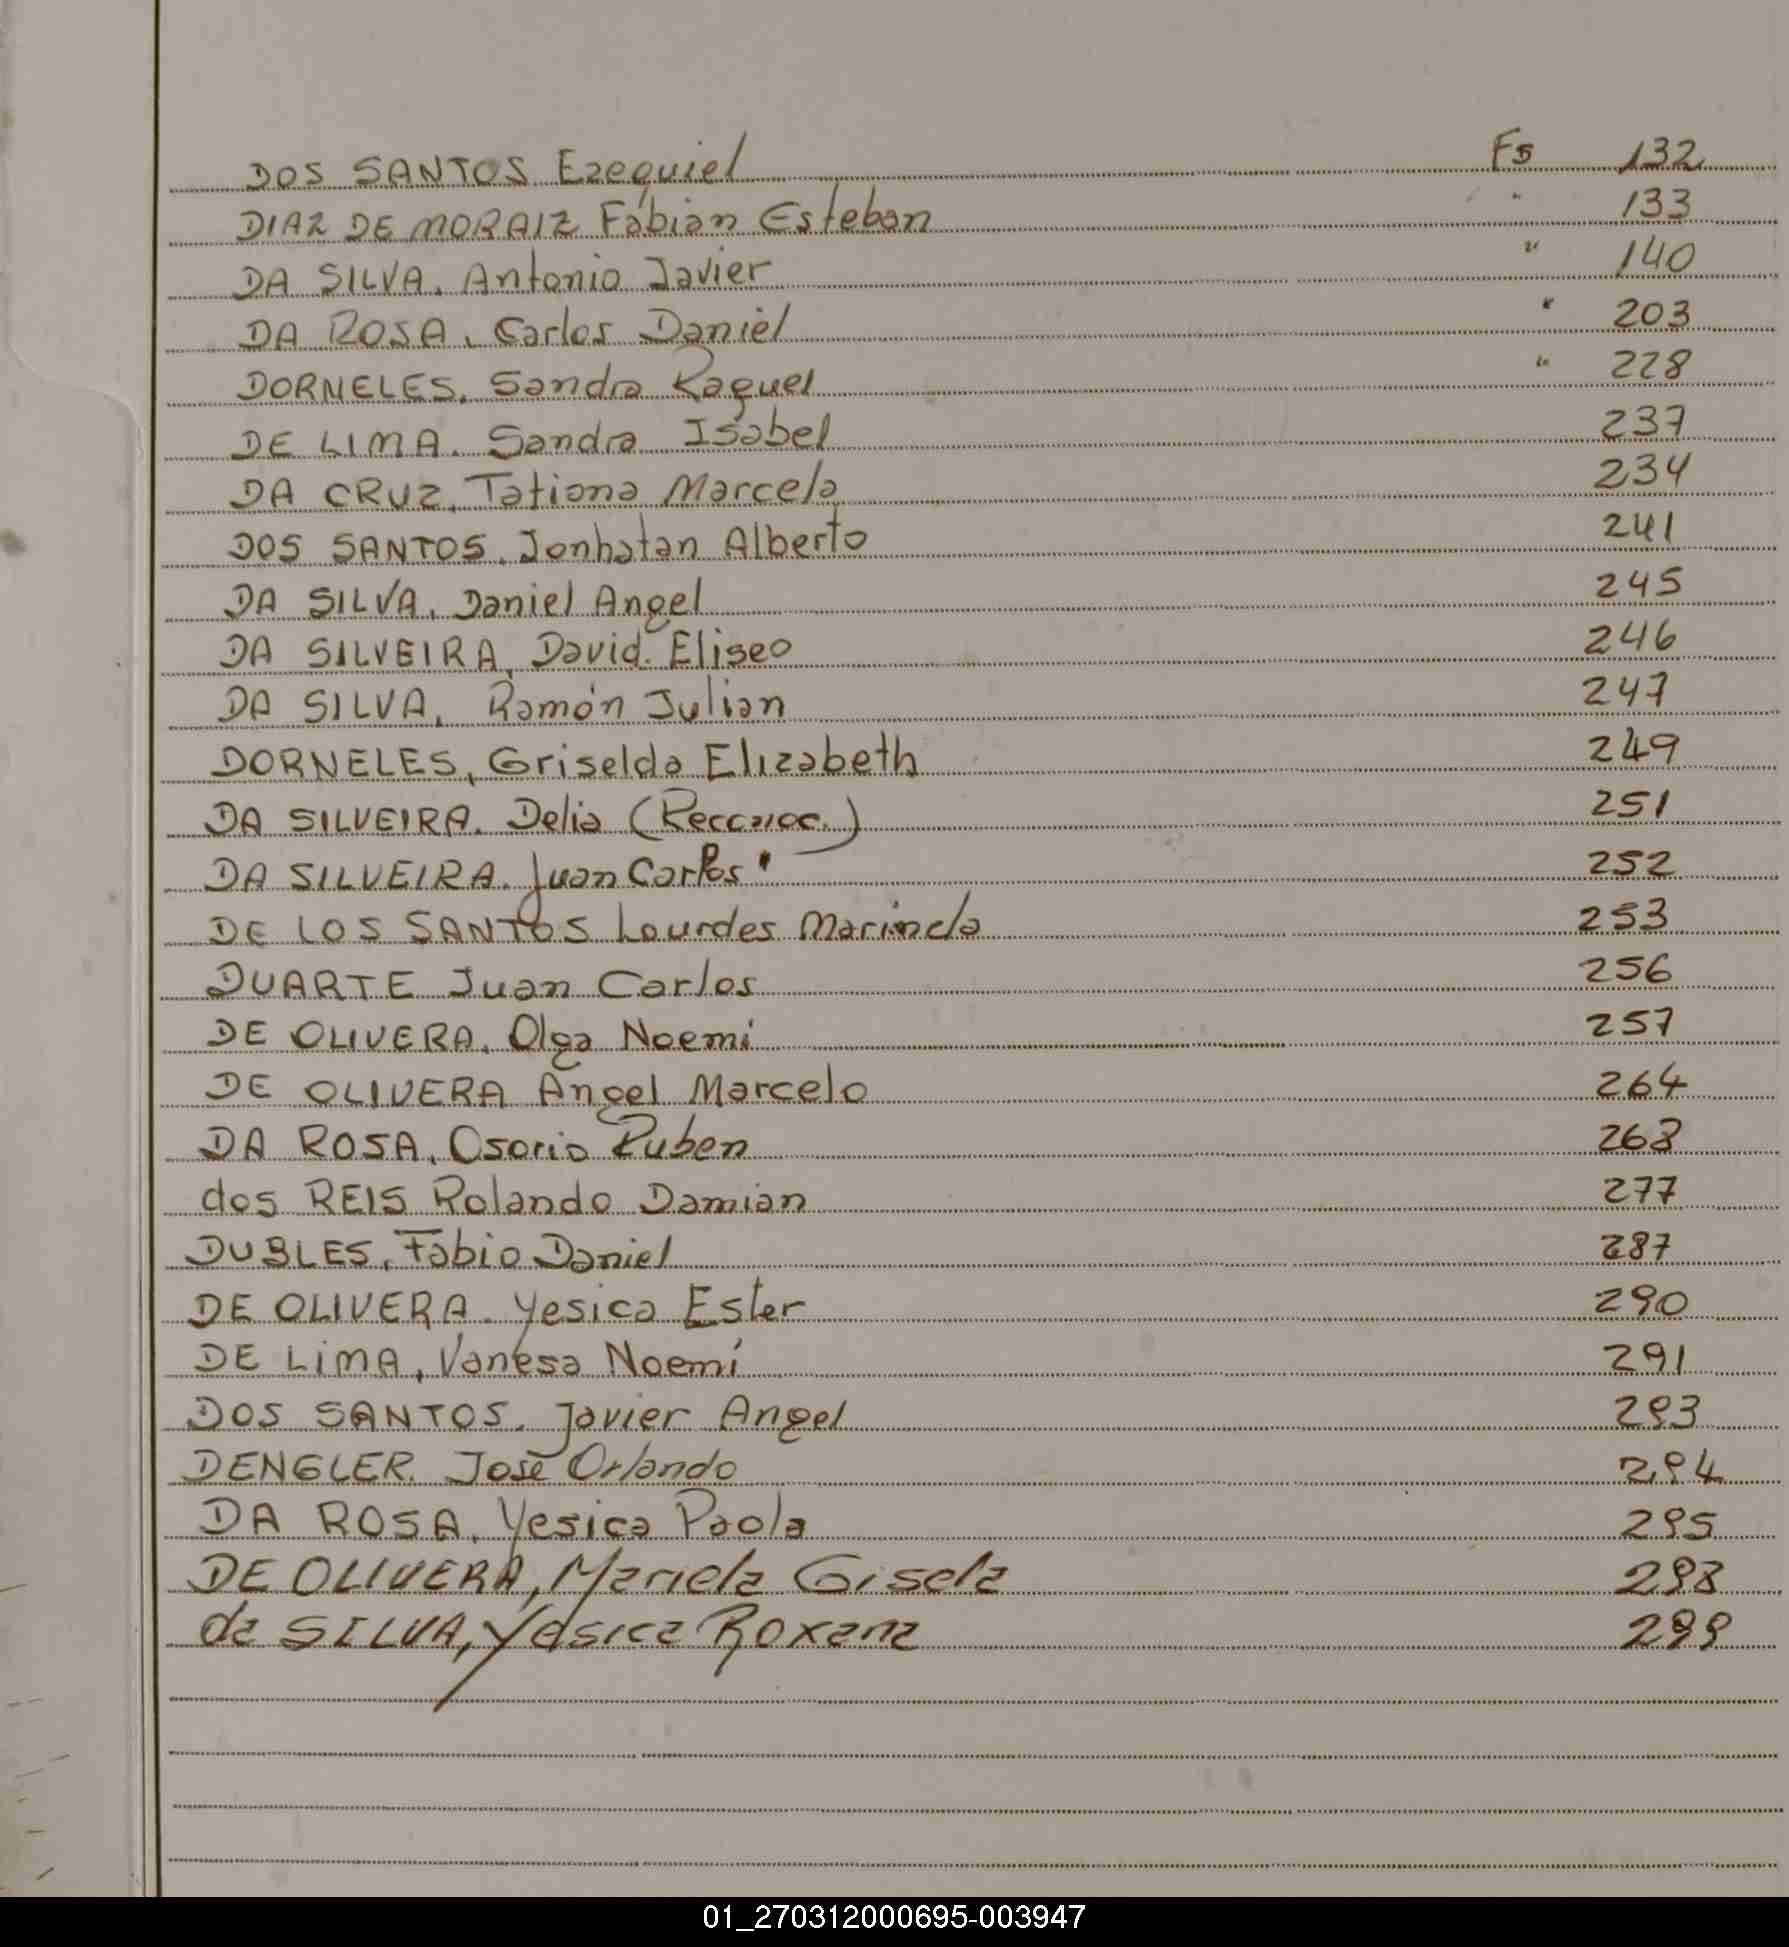 DOS SANTOS Ezequiel Fs 132
DIAZ DE MORAIZ Fabián Esteban " 133
DA SILVA, Antonio Javier " 140
DA ROSA, Carlos Daniel " 203
DORNELES, Sandra Raquel " 228
DE LIMA, Sandra Isabel 237
DA CRUZ, Tatiana Marcela 234
DOS SANTOS, Jonhatan Alberto 241
DA SILVA, Daniel Angel 245
DA SILVEIRA, David Eliseo 246
DA SILVA, Ramón Julian 247
DORNELES, Griselda Elizabeth 249
DA SILVEIRA, Delia 251
DA SILVEIRA, Juan Carlos 252
DE LOS SANTOS Lourdes 253
DUARTE Juan Carlos 256
DE OLIVERA, Olga Noemi 257
DE OLIVERA Angel Marcelo 264
DA ROSA, Osorio Ruben 268
dos REIS Rolando Damian 277
DUBLES, Fabio Daniel 287
DE OLIVERA, Yesica Ester 290
DE LiMA, Vanesa Noemí 291
DOS SANTOS, Javier Angel 293
DENGLER, José Orlando 294
DA ROSA, Yesica Paola 295
DE OLIVERA, Mariela Gisela 298
da SILVA, Yesica Roxana 299
01_270312000695-003947